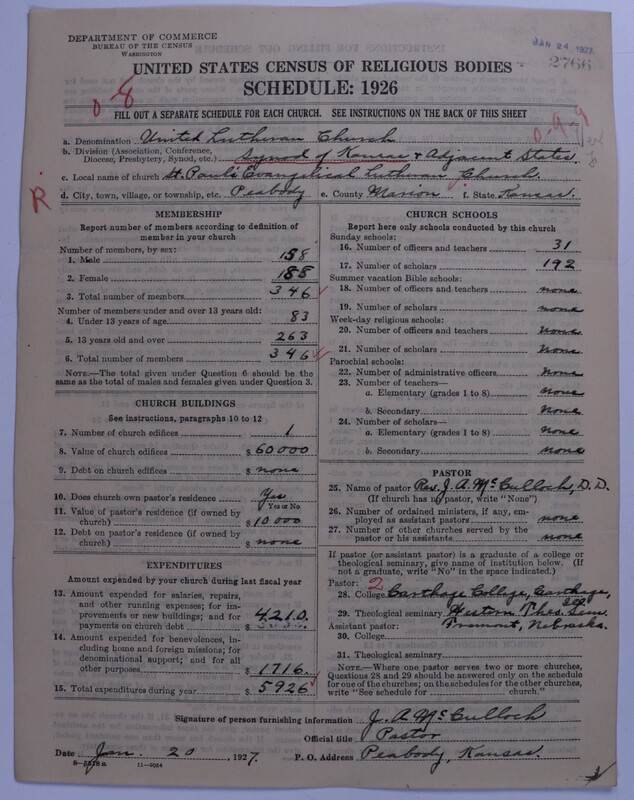 DEPARTMENT OF COMMERCE
BUREAU OF THE CENSUS
WASHINGTON
JAN 24 1927
2766
UNITED STATES CENSUS OF RELIGIOUS BODIES
SCHEDULE: 1926
FILL OUT A SEPARATE SCHEDULE FOR EACH CHURCH. SEE INSTRUCTIONS ON THE BACK OF THIS SHEET
0-9-9
a. Denomination United Lutheran Church
b. Division (Association, Conference, Diocese, Presbytery, Synod, etc.) Synod of Kansas & Adjacent States.
c. Local name of church St. Pauls Evangelical Lutheran Church.
R
d. City, town, village, or township, etc. Peabody e. County Marion f. State Kansas.
MEMBERSHIP
Report number of members according to definition of
member in your church
Number of members, by sex:
1. Male 158
2. Female 188
3. Total number of members 346
Number of members under and over 13 years old:
4. Under 13 years of age 83
5. 13 years old and over 263
6. Total number of members 346
NOTE.—The total given under Question 6 should be
the same as the total of males and females given under Question 3.
CHURCH BUILDINGS
See instructions, paragraphs 10 to 12
7. Number of church edifices 1
8. Value of church edifices $ 60000
9. Debt on church edifices $ none
10. Does church own pastor's residence Yes
Yes or No
11. Value of pastor's residence (if owned by
church) $ 10000
12. Debt on pastor's residence (if owned by
church) $ none
EXPENDITURES
Amount expended by your church during last fiscal year
13. Amount expended for salaries, repairs,
and other running expenses; for im-
provements or new buildings; and for
payments on church debt $ 4210.
14. Amount expended for benevolences, in-
cluding home and foreign missions; for
denominational support; and for all
other purposes $ 1716.
15. Total expenditures during year $ 5926
CHURCH SCHOOLS
Report here only schools conducted by this church
Sunday schools:
16. Number of officers and teachers 31
17. Number of scholars 192
Summer vacation Bible schools:
18. Number of officers and teachers none
19. Number of scholars none
Week-day religious schools:
20. Number of officers and teachers none
21. Number of scholars none
Parochial schools:
22. Number of administrative officers none
23. Number of teachers—
a. Elementary (grades 1 to 8) none
b. Secondary none
24. Number of scholars—
a. Elementary (grades 1 to 8) none
b. Secondary none
PASTOR
25. Name of pastor Rev. J. A. McCulloch, D. D.
(If church has no pastor, write "None")
26. Number of ordained ministers, if any, em-
ployed as assistant pastors none
27. Number of other churches served by the
pastor or his assistants none
If pastor (or assistant pastor) is a graduate of a college or
theological seminary, give name of institution below. (If
not a graduate, write "No" in the space indicated.)
Pastor: 2
28. College Carthage College, Carthage, Ill.
29. Theological seminary Western Theo. Sem.
Assistant pastor: Fremont, Nebraska.
30. College
31. Theological seminary
NOTE.—Where one pastor serves two or more churches,
Questions 28 and 29 should be answered only on the schedule
for one of the churches; on the schedules for the other churches,
write "See schedule for church."
Signature of person furnishing information J. A. McCulloch
Official title Pastor
Date Jan. 20, 1927. P. O. Address Peabody, Kansas.
11—9024